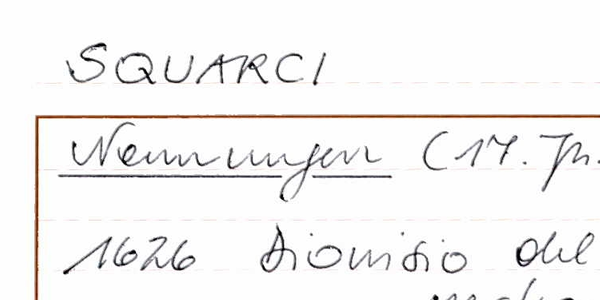 SQUARCI
Nennungen (17. Jh.
1626 Dionisio del